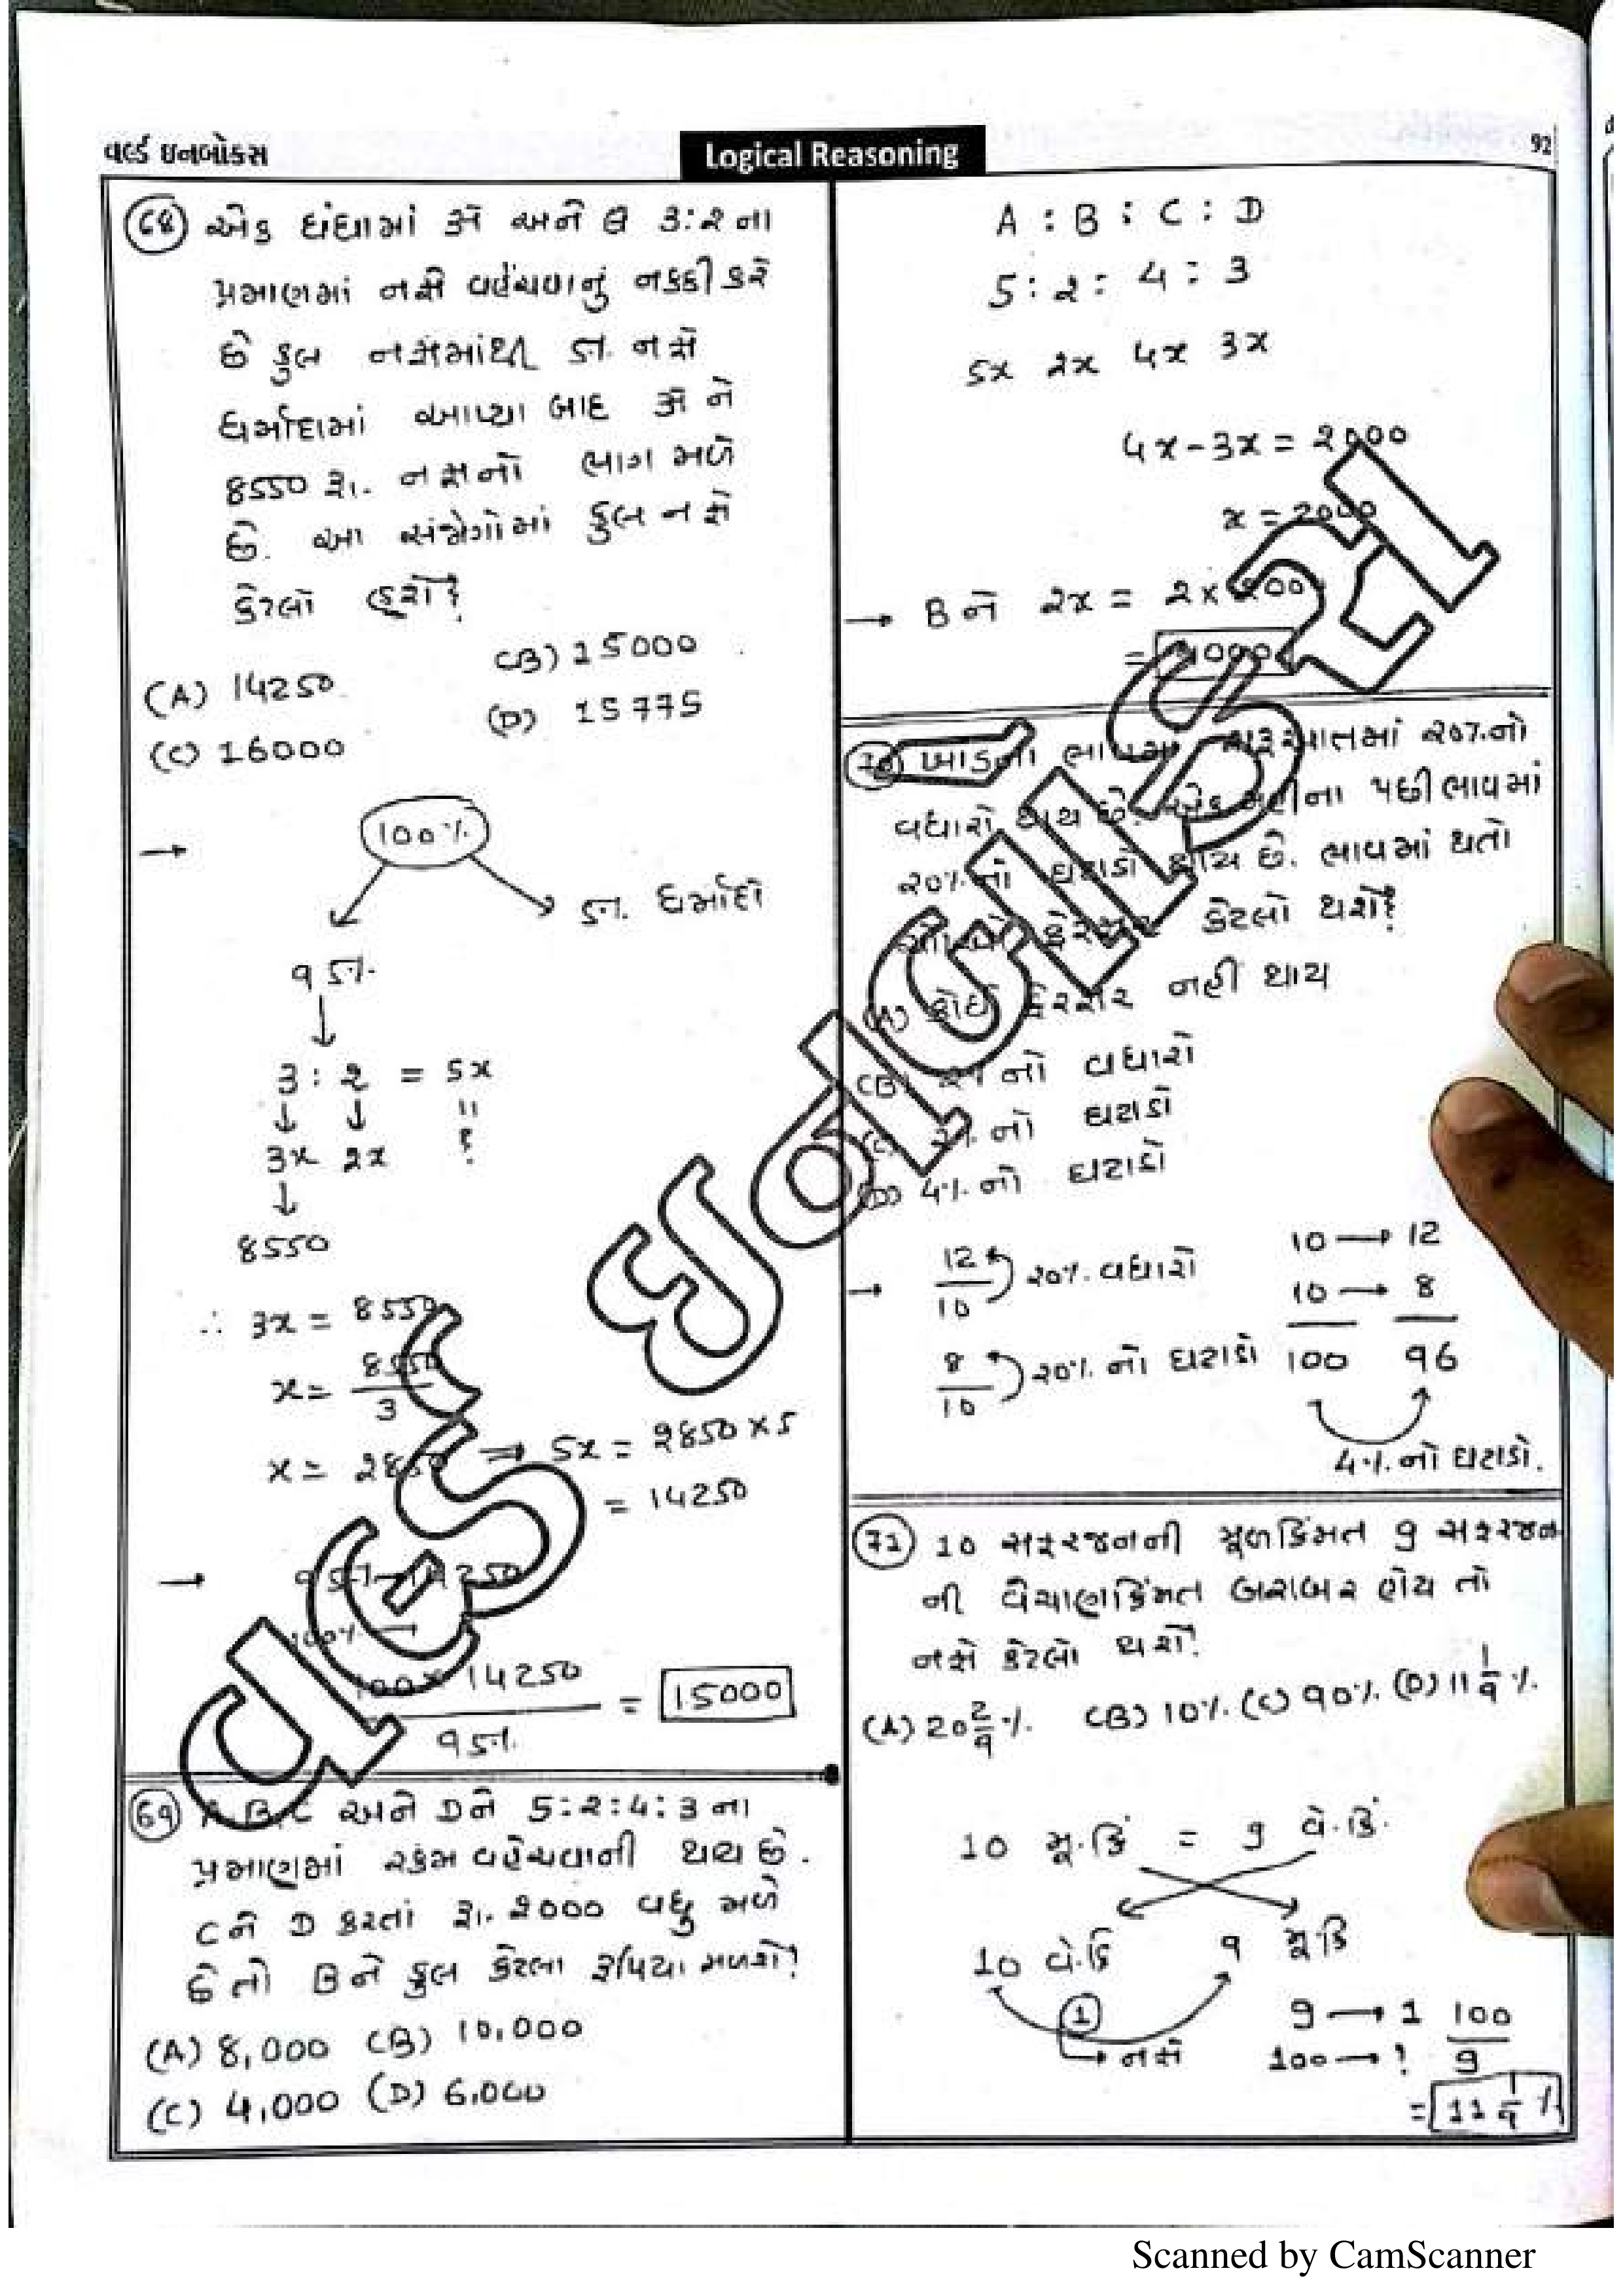 વર્લ્ડ ઇનબોક્સ
Logical Reasoning
92
68 એક ધંધામાં અ અને બ 3:2 ના
પ્રમાણમાં નફો વહેંચવાનું નક્કી કરે
છે કુલ નફામાંથી 5% નફો
ધર્માદામાં આપ્યા બાદ અ ને
8550 રૂા. નફાનો ભાગ મળે
છે. આ સંજોગોમાં કુલ નફો
કેટલો હશે?
(A) 14250 (B) 15000
(C) 16000 (D) 15775
→ 100%
5% ધર્માદો
95%
3 : 2 = 5x
3x 2x ?
8550
∴ 3x = 8550
x = 8550/3
x = 2850 ⇒ 5x = 2850 × 5
= 14250
→ 95% → 14250
100% →
100 × 14250 / 95% = 15000
69 A B, C અને D ને 5:2:4:3 ના
પ્રમાણમાં રકમ વહેંચવાની થાય છે.
C ને D કરતાં રૂા. 2000 વધુ મળે
છે તો B ને કુલ કેટલા રૂપિયા મળશે?
(A) 8,000 (B) 10,000
(C) 4,000 (D) 6,000
A : B : C : D
5 : 2 : 4 : 3
5x 2x 4x 3x
4x - 3x = 2000
x = 2000
→ B ને 2x = 2 × 2000
= 4000
70 ખાંડના ભાવમાં શરૂઆતમાં 20% નો
વધારો થાય છે. એક મહીના પછી ભાવમાં
20% નો ઘટાડો થાય છે. ભાવમાં થતો
ફેરફાર કેટલો થશે?
(A) કોઈ ફેરફાર નહીં થાય
(B) 2% નો વધારો
(C) 2% નો ઘટાડો
(D) 4% નો ઘટાડો
→ 12/10 20% વધારો
8/10 20% નો ઘટાડો
10 → 12
10 → 8
100 96
4% નો ઘટાડો.
71 10 સફરજનની મૂળકિંમત 9 સફરજન
ની વેચાણકિંમત બરાબર હોય તો
નફો કેટલો થશે?
(A) 20 2/9 % (B) 10% (C) 90% (D) 11 1/9 %
10 મૂ.કિં = 9 વે.કિં.
10 વે.કિ 9 મૂ.કિ
1
→ નફો
9 → 1
100 → ?
100/9
= 11 1/9 %
Scanned by CamScanner